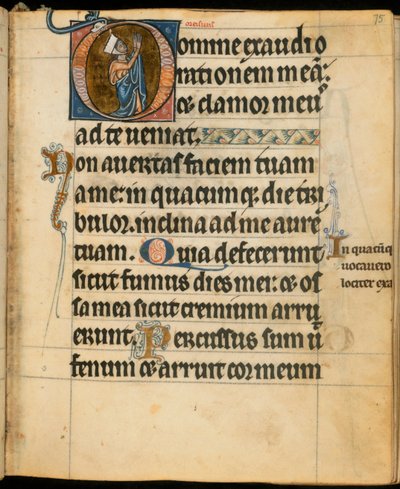 75
Domine exaudi o
rationem meā:
et clamor meus
ad te veniat.
Non avertas faciem tuam
a me: in quacumq; die tri
bulor. inclina ad me aurē
tuam. Quia defecerunt
sicut fumus dies mei: et os
sa mea sicut cremium arru
erunt. Percussus sum ū
fenum et arruit cor meum
In quacūq
vocavero
lociter exa